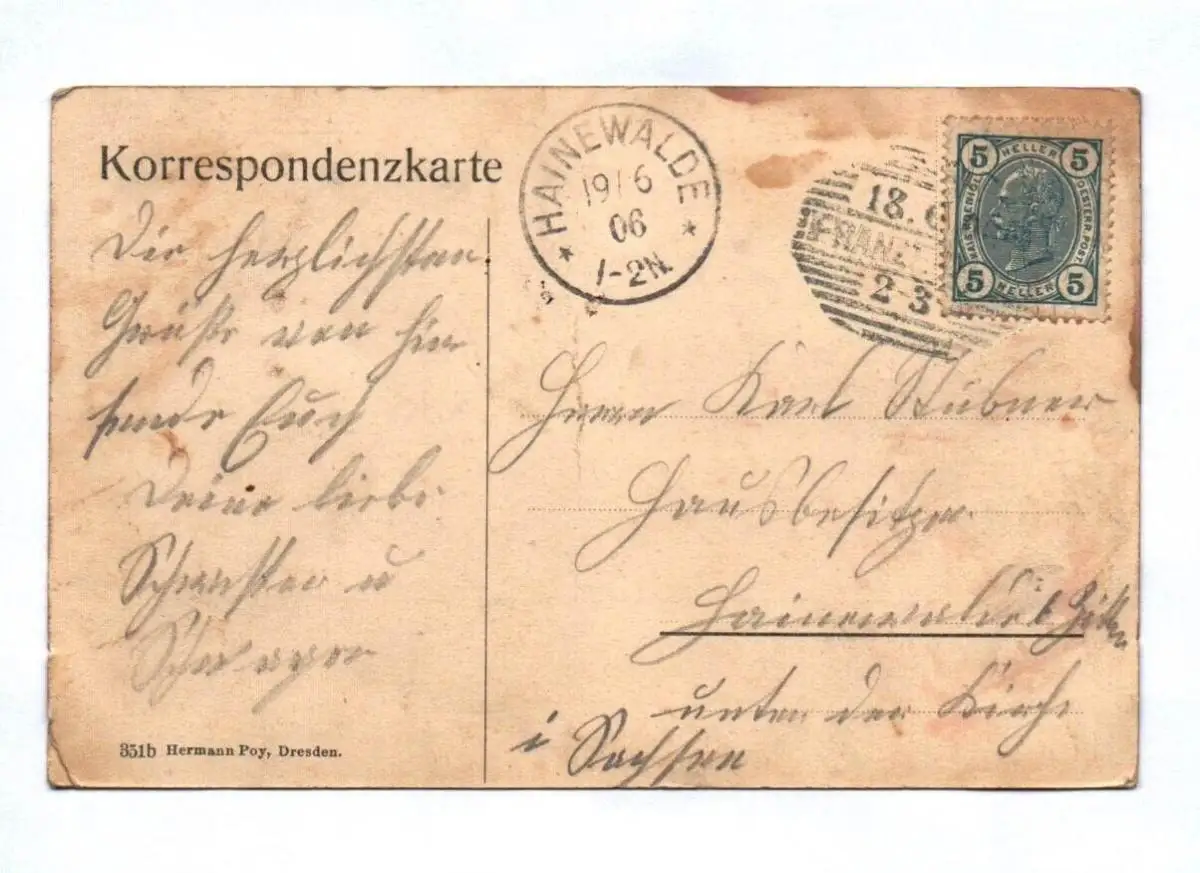 Korrespondenzkarte
HAINEWALDE
19/6
06
1-2N.
18. 6
FRANZ
2-3
5 HELLER 5
KAIS. KOENIGL. OESTERR. POST
5 HELLER 5
Die herzlichsten
Grüße von hier
sendet Euch
Deine liebe
Schwester u
Schwager
Herrn Karl Stübner
Hausbesitzer
Hainewalde b Zittau
unter der Kirche
i Sachsen
351b Hermann Poy, Dresden.